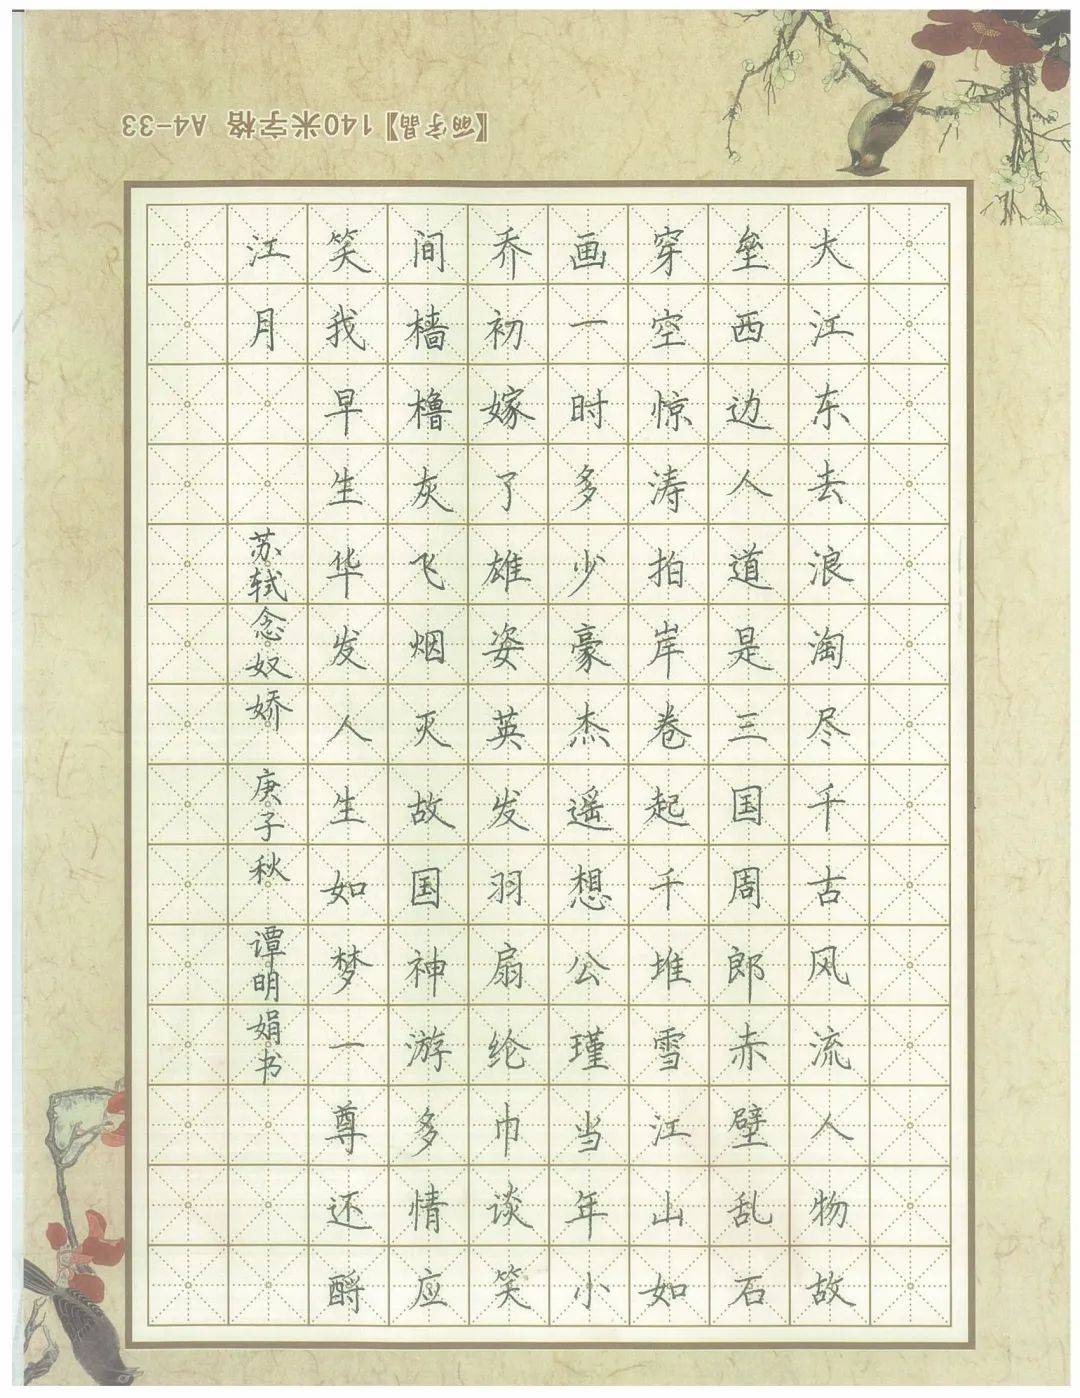 【丽字晶】140米字格 A4-33
大江东去浪淘尽千古风流人物故
垒西边人道是三国周郎赤壁乱石
穿空惊涛拍岸卷起千堆雪江山如
画一时多少豪杰遥想公瑾当年小
乔初嫁了雄姿英发羽扇纶巾谈笑
间樯橹灰飞烟灭故国神游多情应
笑我早生华发人生如梦一尊还酹
江月 苏轼念奴娇 庚子秋 谭明娟书